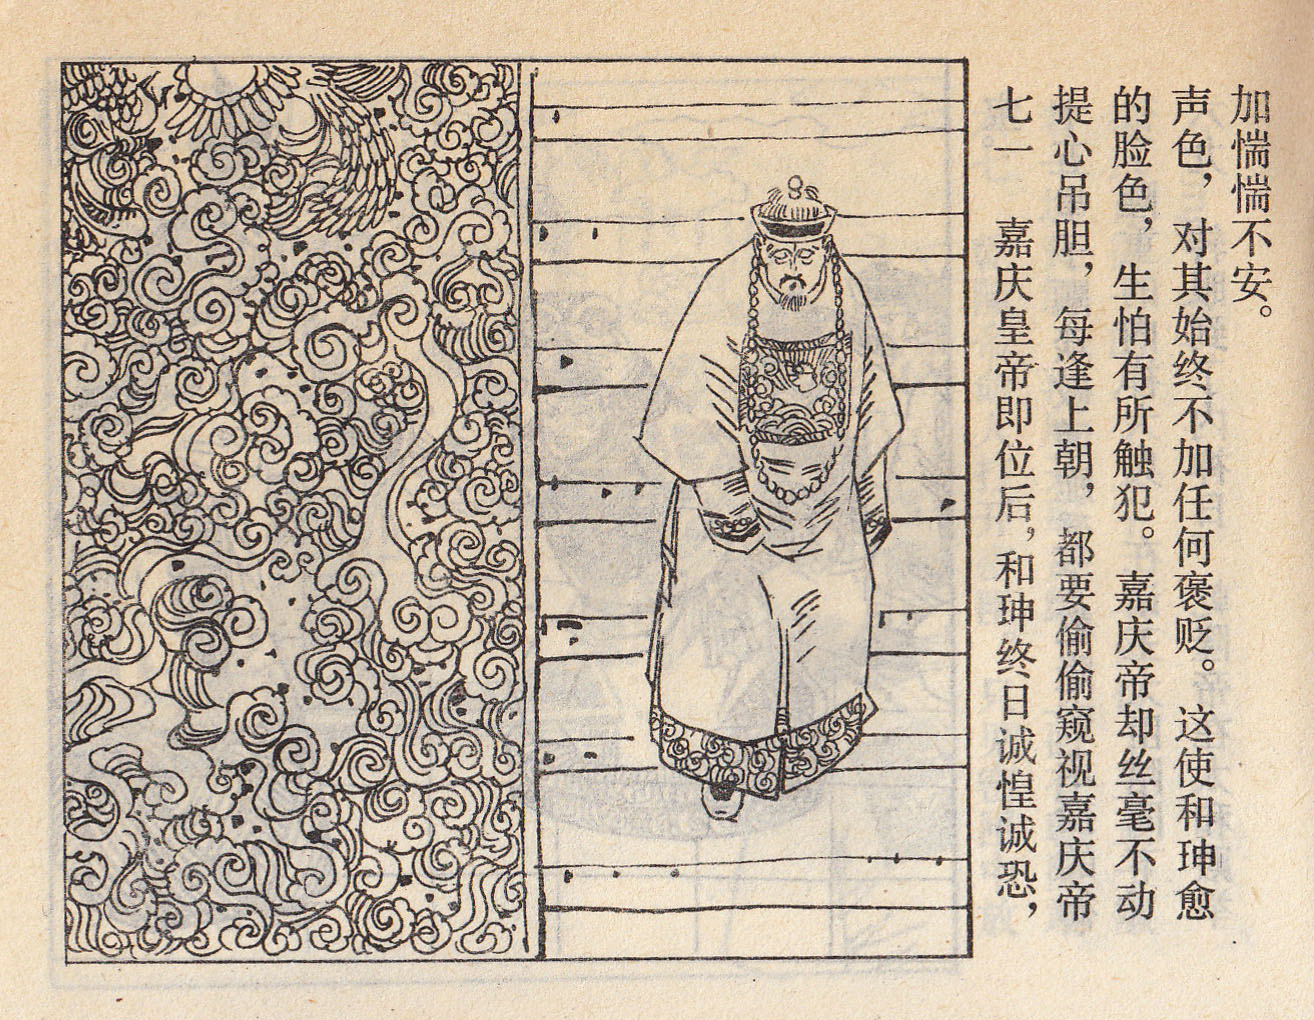 七一 嘉庆皇帝即位后，和珅终日诚惶诚恐，
提心吊胆，每逢上朝，都要偷偷窥视嘉庆帝
的脸色，生怕有所触犯。嘉庆帝却丝毫不动
声色，对其始终不加任何褒贬。这使和珅愈
加惴惴不安。